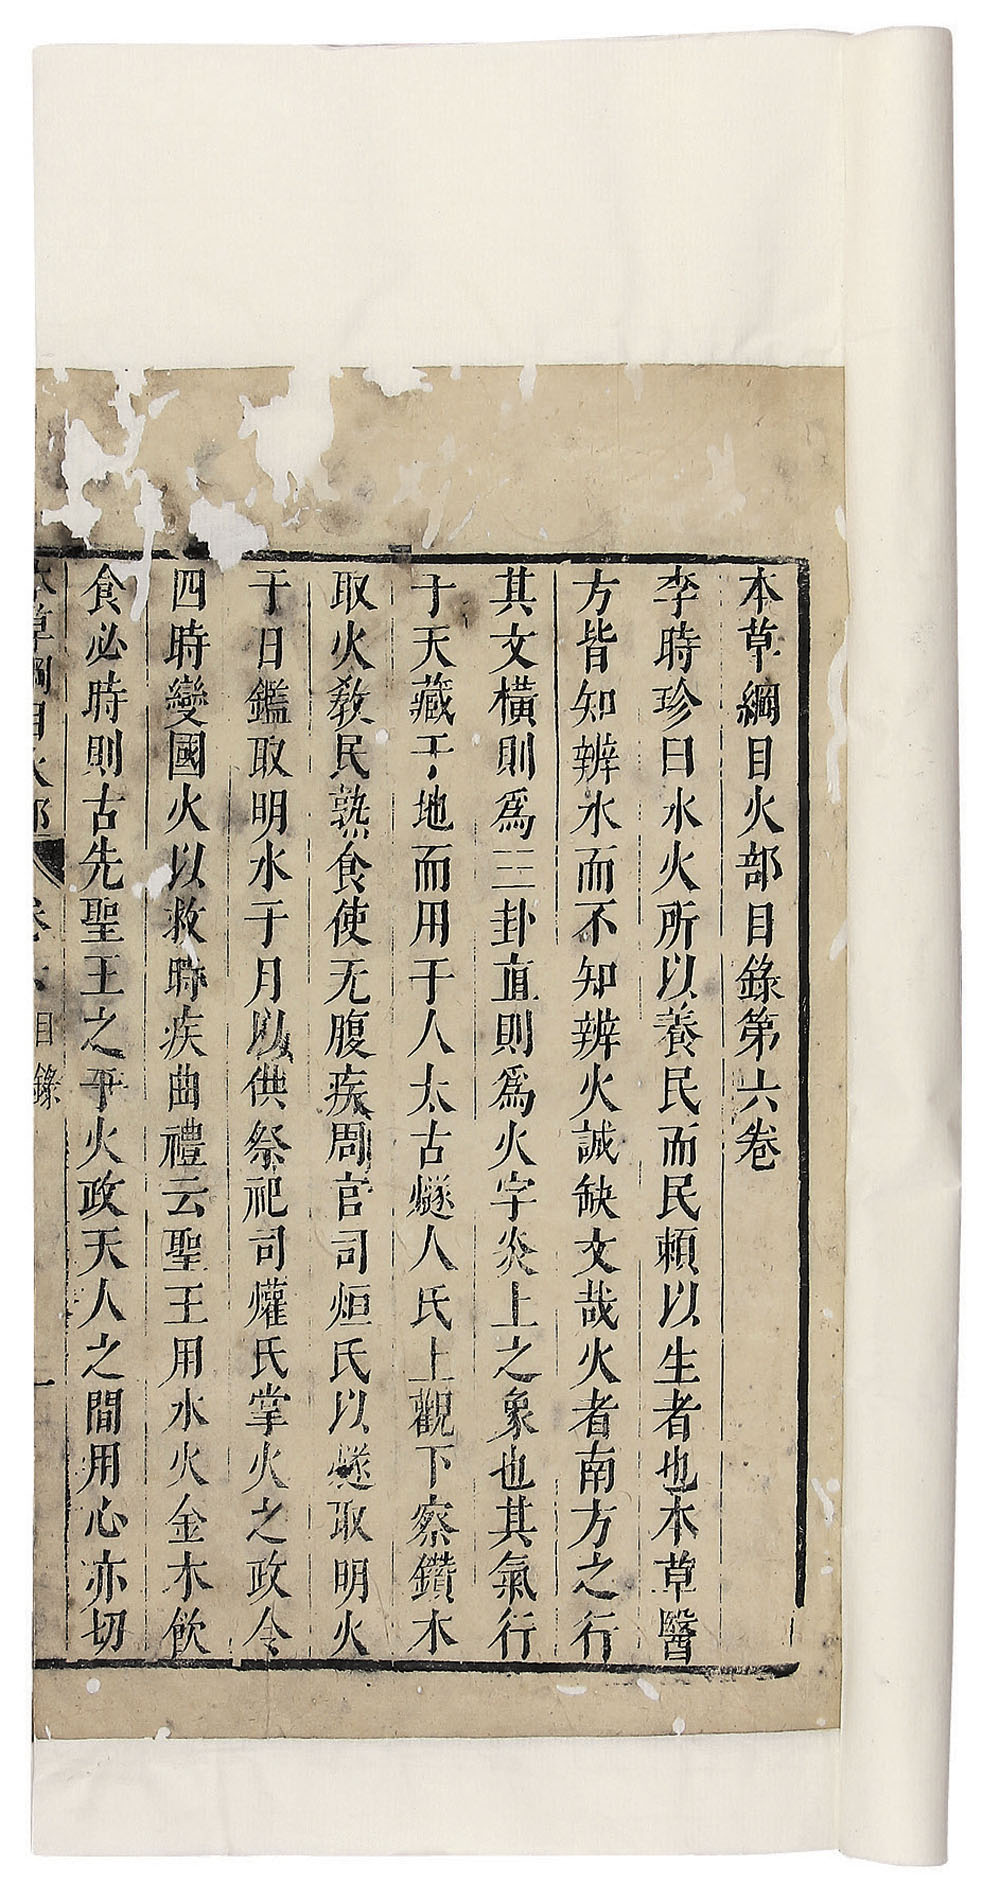 本草綱目火部目錄第六卷
李時珍曰水火所以養民而民頼以生者也本草醫
方皆知辨水而不知辨火誠缺文哉火者南方之行
其文橫則爲三卦直則爲火字炎上之象也其氣行
于天藏于地而用于人太古燧人氏上觀下察鑽木
取火敎民熟食使无腹疾周官司烜氏以燧取明火
于日鑑取明水于月以供祭祀司爟氏掌火之政令
四時變國火以救時疾曲禮云聖王用水火金木飲
食必時則古先聖王之于火政天人之間用心亦切
本草綱目火部 卷六 目錄 一